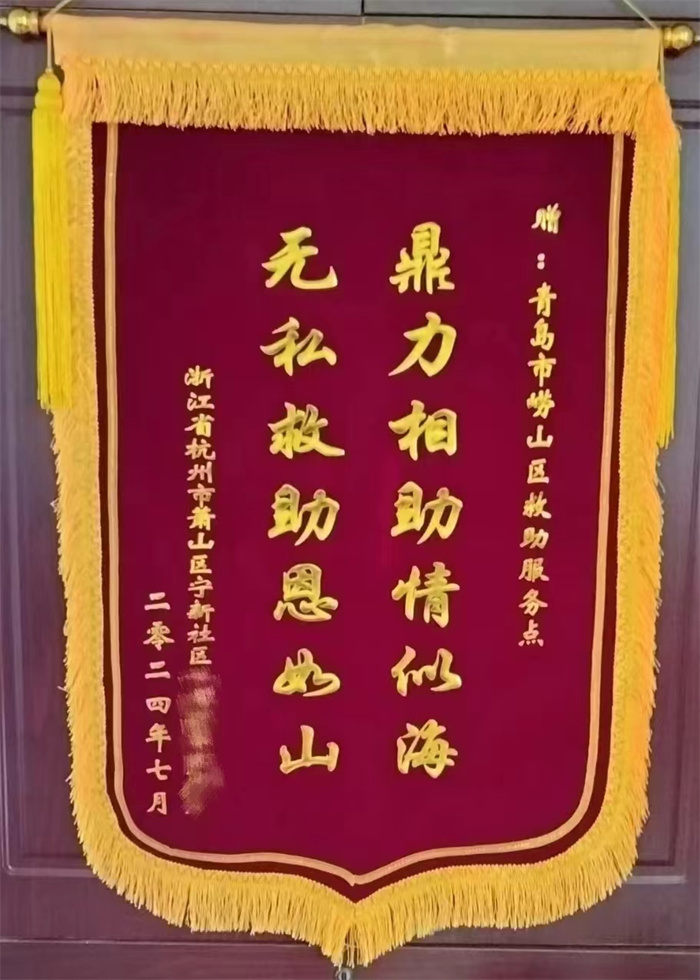 赠：青岛市崂山区救助服务点
鼎力相助情似海
无私救助恩如山
浙江省杭州市萧山区宁新社区
二零二四年七月